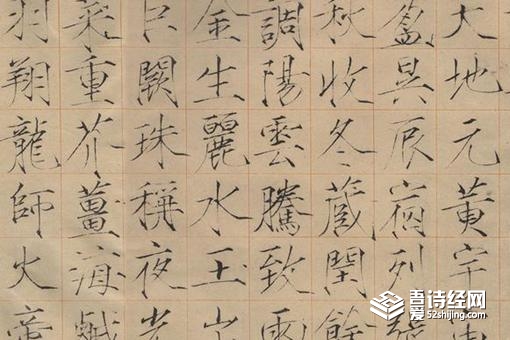 天地元黄宇
盈昃辰宿列張
秋收冬藏閏餘
調陽雲騰致雨
金生麗水玉出
巨闕珠稱夜光
菜重芥薑海鹹
羽翔龍師火帝
吾诗经网
52shijing.com